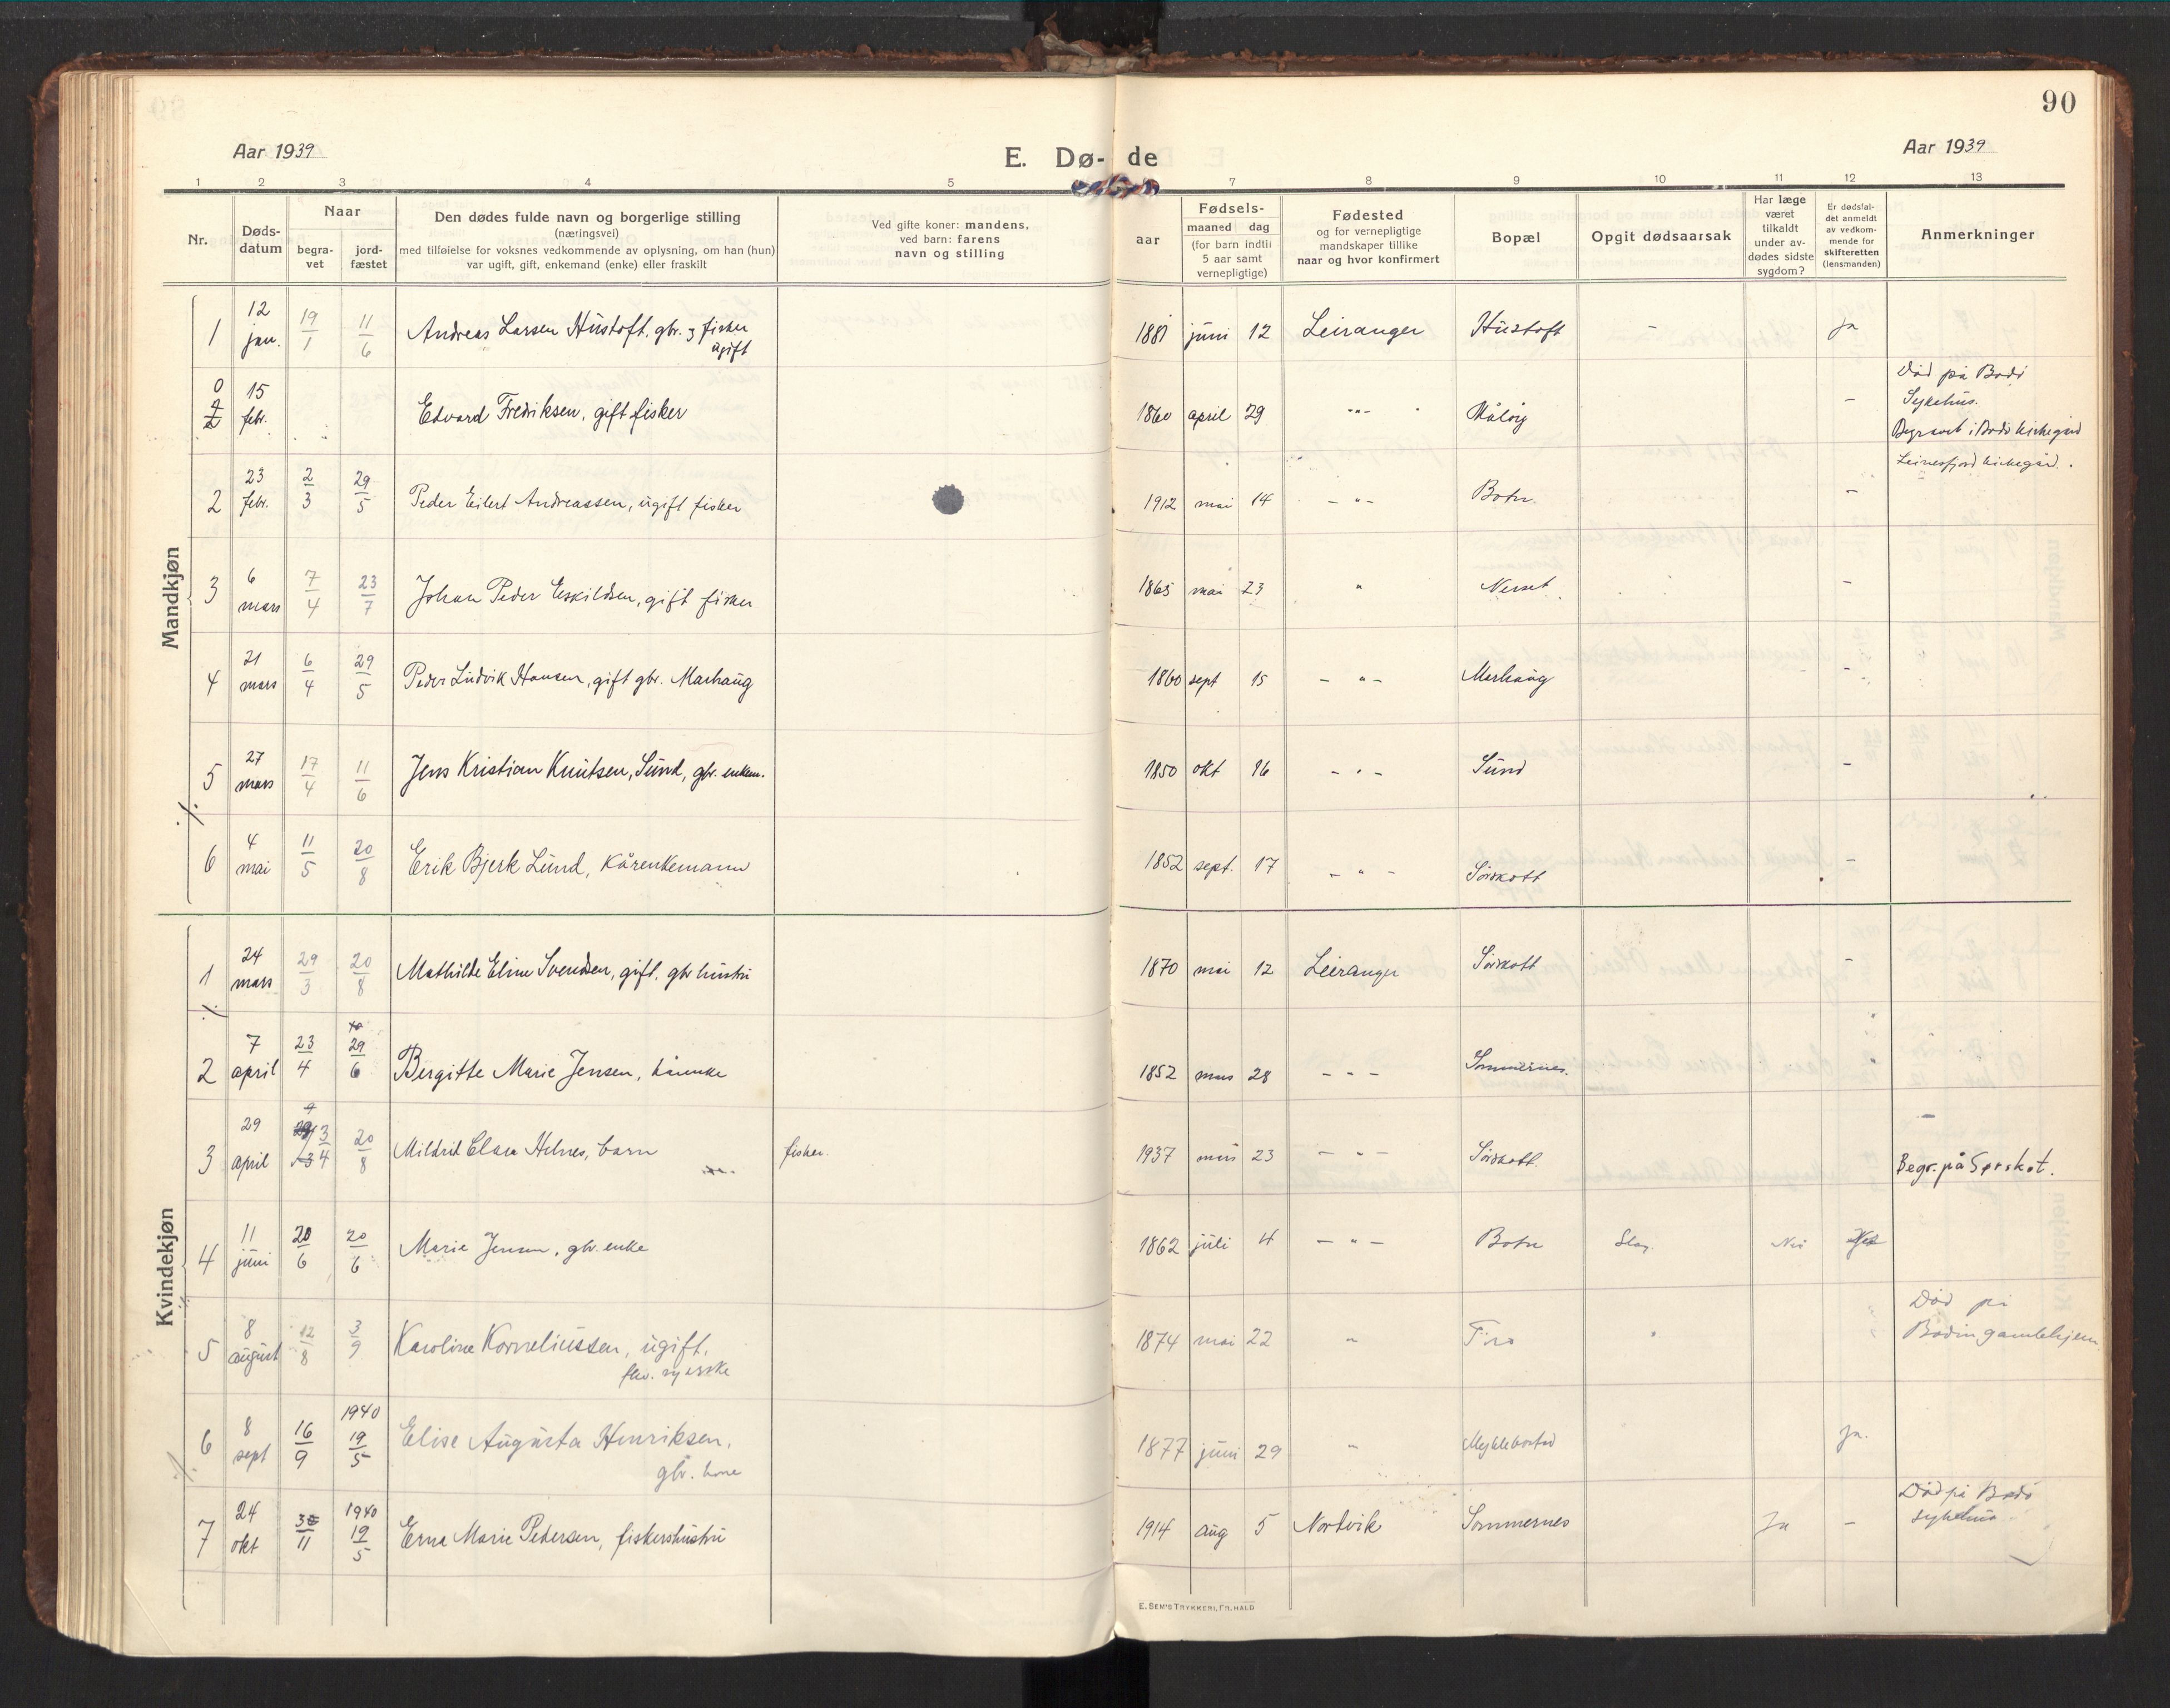 90
Aar 1939
E. Dø- de
Aar 1939
1 2 3 4 5 7 8 9 10 11 12 13
Nr.
Døds-
datum
Naar
begra-
vet
jord-
fæstet
Den dødes fulde navn og borgerlige stilling
(næringsvei)
med tilføielse for voksnes vedkommende av oplysning, om han (hun)
var ugift, gift, enkemand (enke) eller fraskilt
Ved gifte koner: mandens,
ved barn: farens
navn og stilling
Fødsels-
aar
maaned dag
(for barn indtil
5 aar samt
vernepligtige)
Fødested
og for vernepligtige
mandskaper tillike
naar og hvor konfirmert
Bopæl
Opgit dødsaarsak
Har læge
været
tilkaldt
under av-
dødes sidste
sygdom?
Er dødsfal-
det anmeldt
av vedkom-
mende for
skifteretten
(lensmanden)
Anmerkninger
Mandkjøn
1 12 jan. 19/1 11/6 Andreas Larsen Hustoft, gbr. & fisker 1881 juni 12 Leiranger Hustoft - ja
ugift
Død på Bodø
0 15 febr. Edvard Fredriksen, gift fisker 1860 april 29 -"- - Sykehus.
Begravet i Bodø kirkegård
Leinesfjord kirkegård.
2 23 febr. 2/3 29/5 Peder Eilert Andreassen, ugift fisker 1912 mai 14 -"- Botn -
3 6 mars 7/4 23/7 Johan Peder Eskildsen, gift fisker 1865 mai 23 " Nerset -
4 21 mars 6/4 29/5 Peder Ludvik Hansen, gift gbr. Marhaug 1860 sept 15 -"- Marhaug -
5 27 mars 17/4 11/6 Jens Kristian Knutsen, Sund, gbr. enkem. 1850 okt 16 -"- Sund -
6 4 mai 11/5 20/8 Erik Bjerk Lund, kårenkemann 1852 sept. 17 -"- Sørskott -
Kvindekjøn
1 24 mars 29/3 20/8 Mathilde Eline Svendsen, gift. gbr hustru 1870 mai 12 Leiranger Sørskott -
2 7 april 23/4 29/6 Bergitte Marie Jensen, kårenke 1852 mars 28 --- Sommernes. "
3 29 april 20/8 Mildrid Clara Helnes, barn fisker. 1937 mars 23 -"- Sørskott. - Begr. på Sørskot.
4 11 juni 20/6 20/6 Marie Jensen, gbr. enke 1862 juli 4 -"- Botn Slag. Nei
Død på
5 8 august 12/8 3/9 Karoline Korneliussen, ugift. 1874 mai 22 " Bodin gamlehjem
fhv. syerske
6 8 sept 16/9 1940 19/5 Elise Augusta Henriksen, 1877 juni 29 " Myklebostad Ja.
gbr. kone
Død på Bodø
7 24 okt 30/11 1940 19/5 Erna Marie Pedersen, fiskershustru 1914 aug 5 Nordvik Sommernes Ja - sykehus
E. SEM'S TRYKKERI, FR. HALD